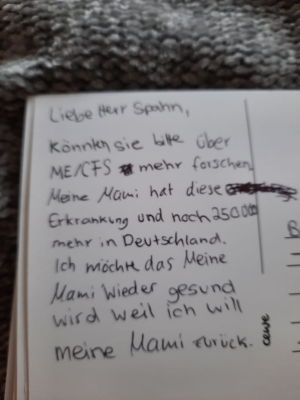 Liebe Herr Spahn,
Könnten sie bitte über
ME/CFS mehr forschen
Meine Mami hat diese
Erkrankung und noch 250000
mehr in Deutschland.
Ich möchte das Meine
Mami Wieder gesund
wird weil ich will
meine Mami zurück.
cewe